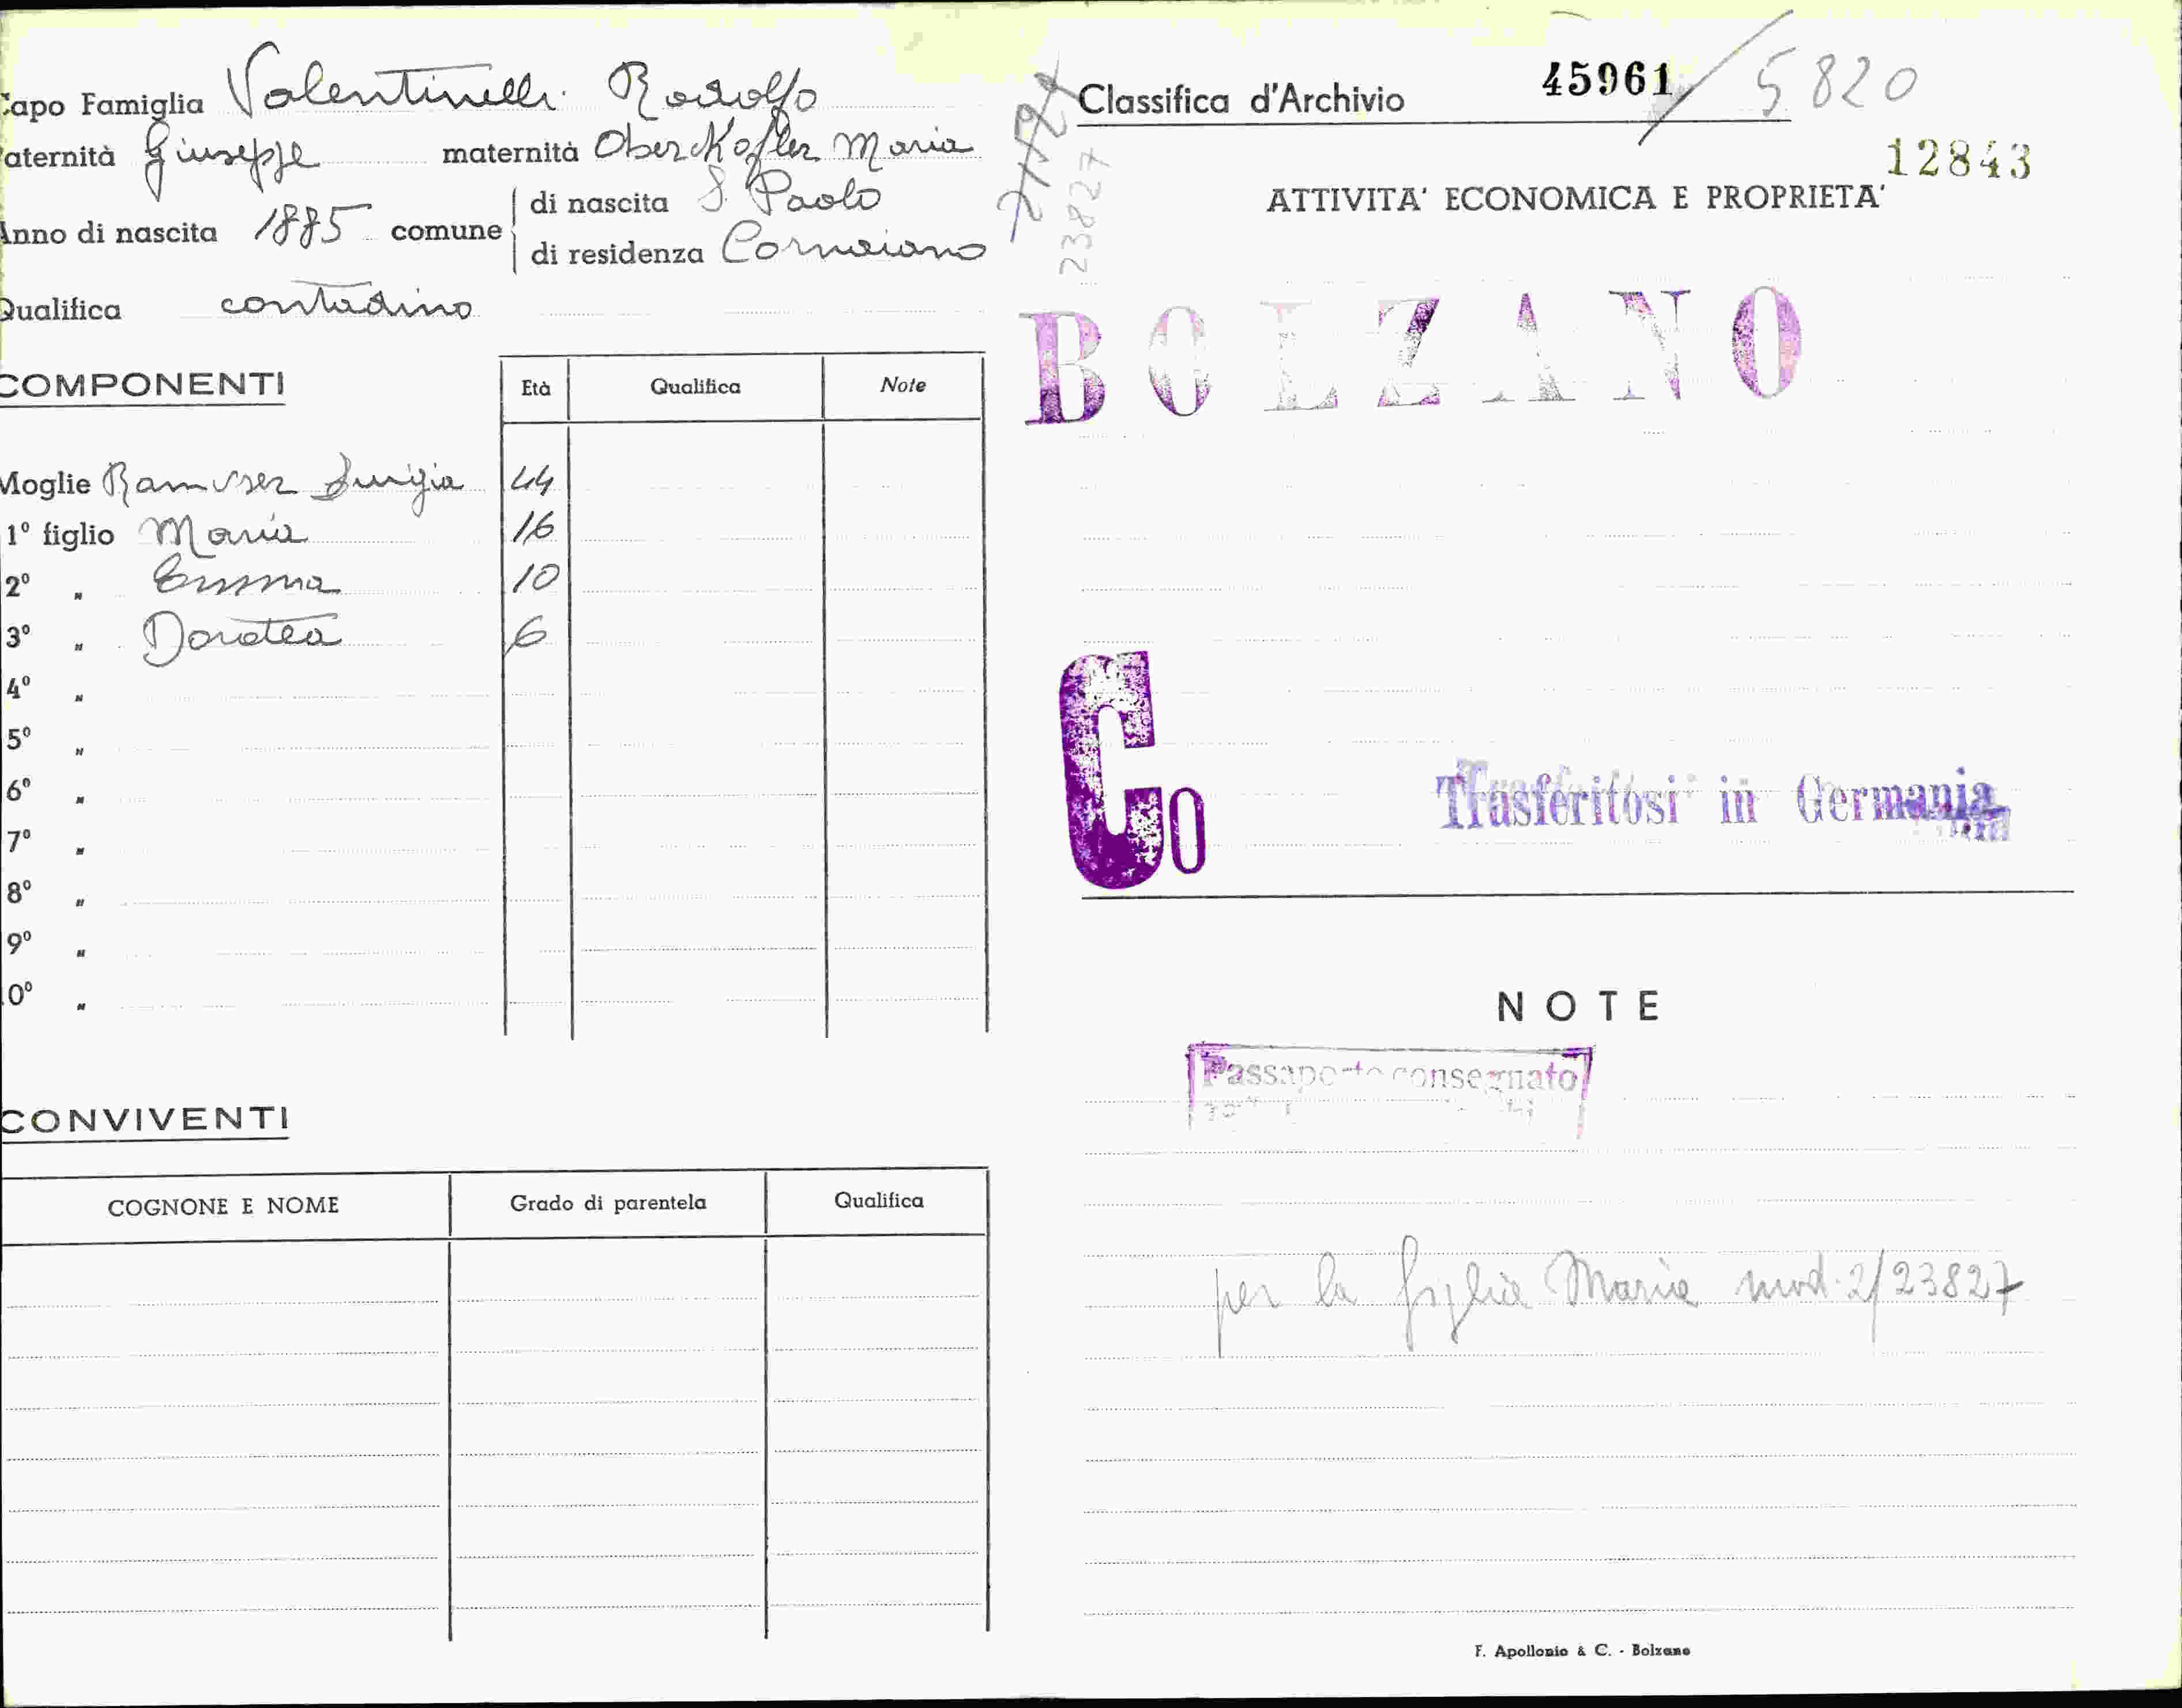 Capo Famiglia Valentinelli Rodolfo
aternità Giuseppe maternità Oberkofler Maria
Anno di nascita 1885 comune di nascita S. Paolo
di residenza Cornaiano
Qualifica contadino
COMPONENTI
Età Qualifica Note
Moglie Ramoser Luigia 44
1º figlio Maria 16
2º " Emma 10
3º " Dorotea 6
4º "
5º "
6º "
7º "
8º "
9º "
0º "
CONVIVENTI
COGNONE E NOME Grado di parentela Qualifica
Classifica d'Archivio 45961 / 5820
12843
23827
ATTIVITA' ECONOMICA E PROPRIETA'
BOLZANO
Co
Trasferitosi in Germania
NOTE
Passaporto consegnato
per la figlia Maria mod. 2/23827
F. Apollonio & C. - Bolzano